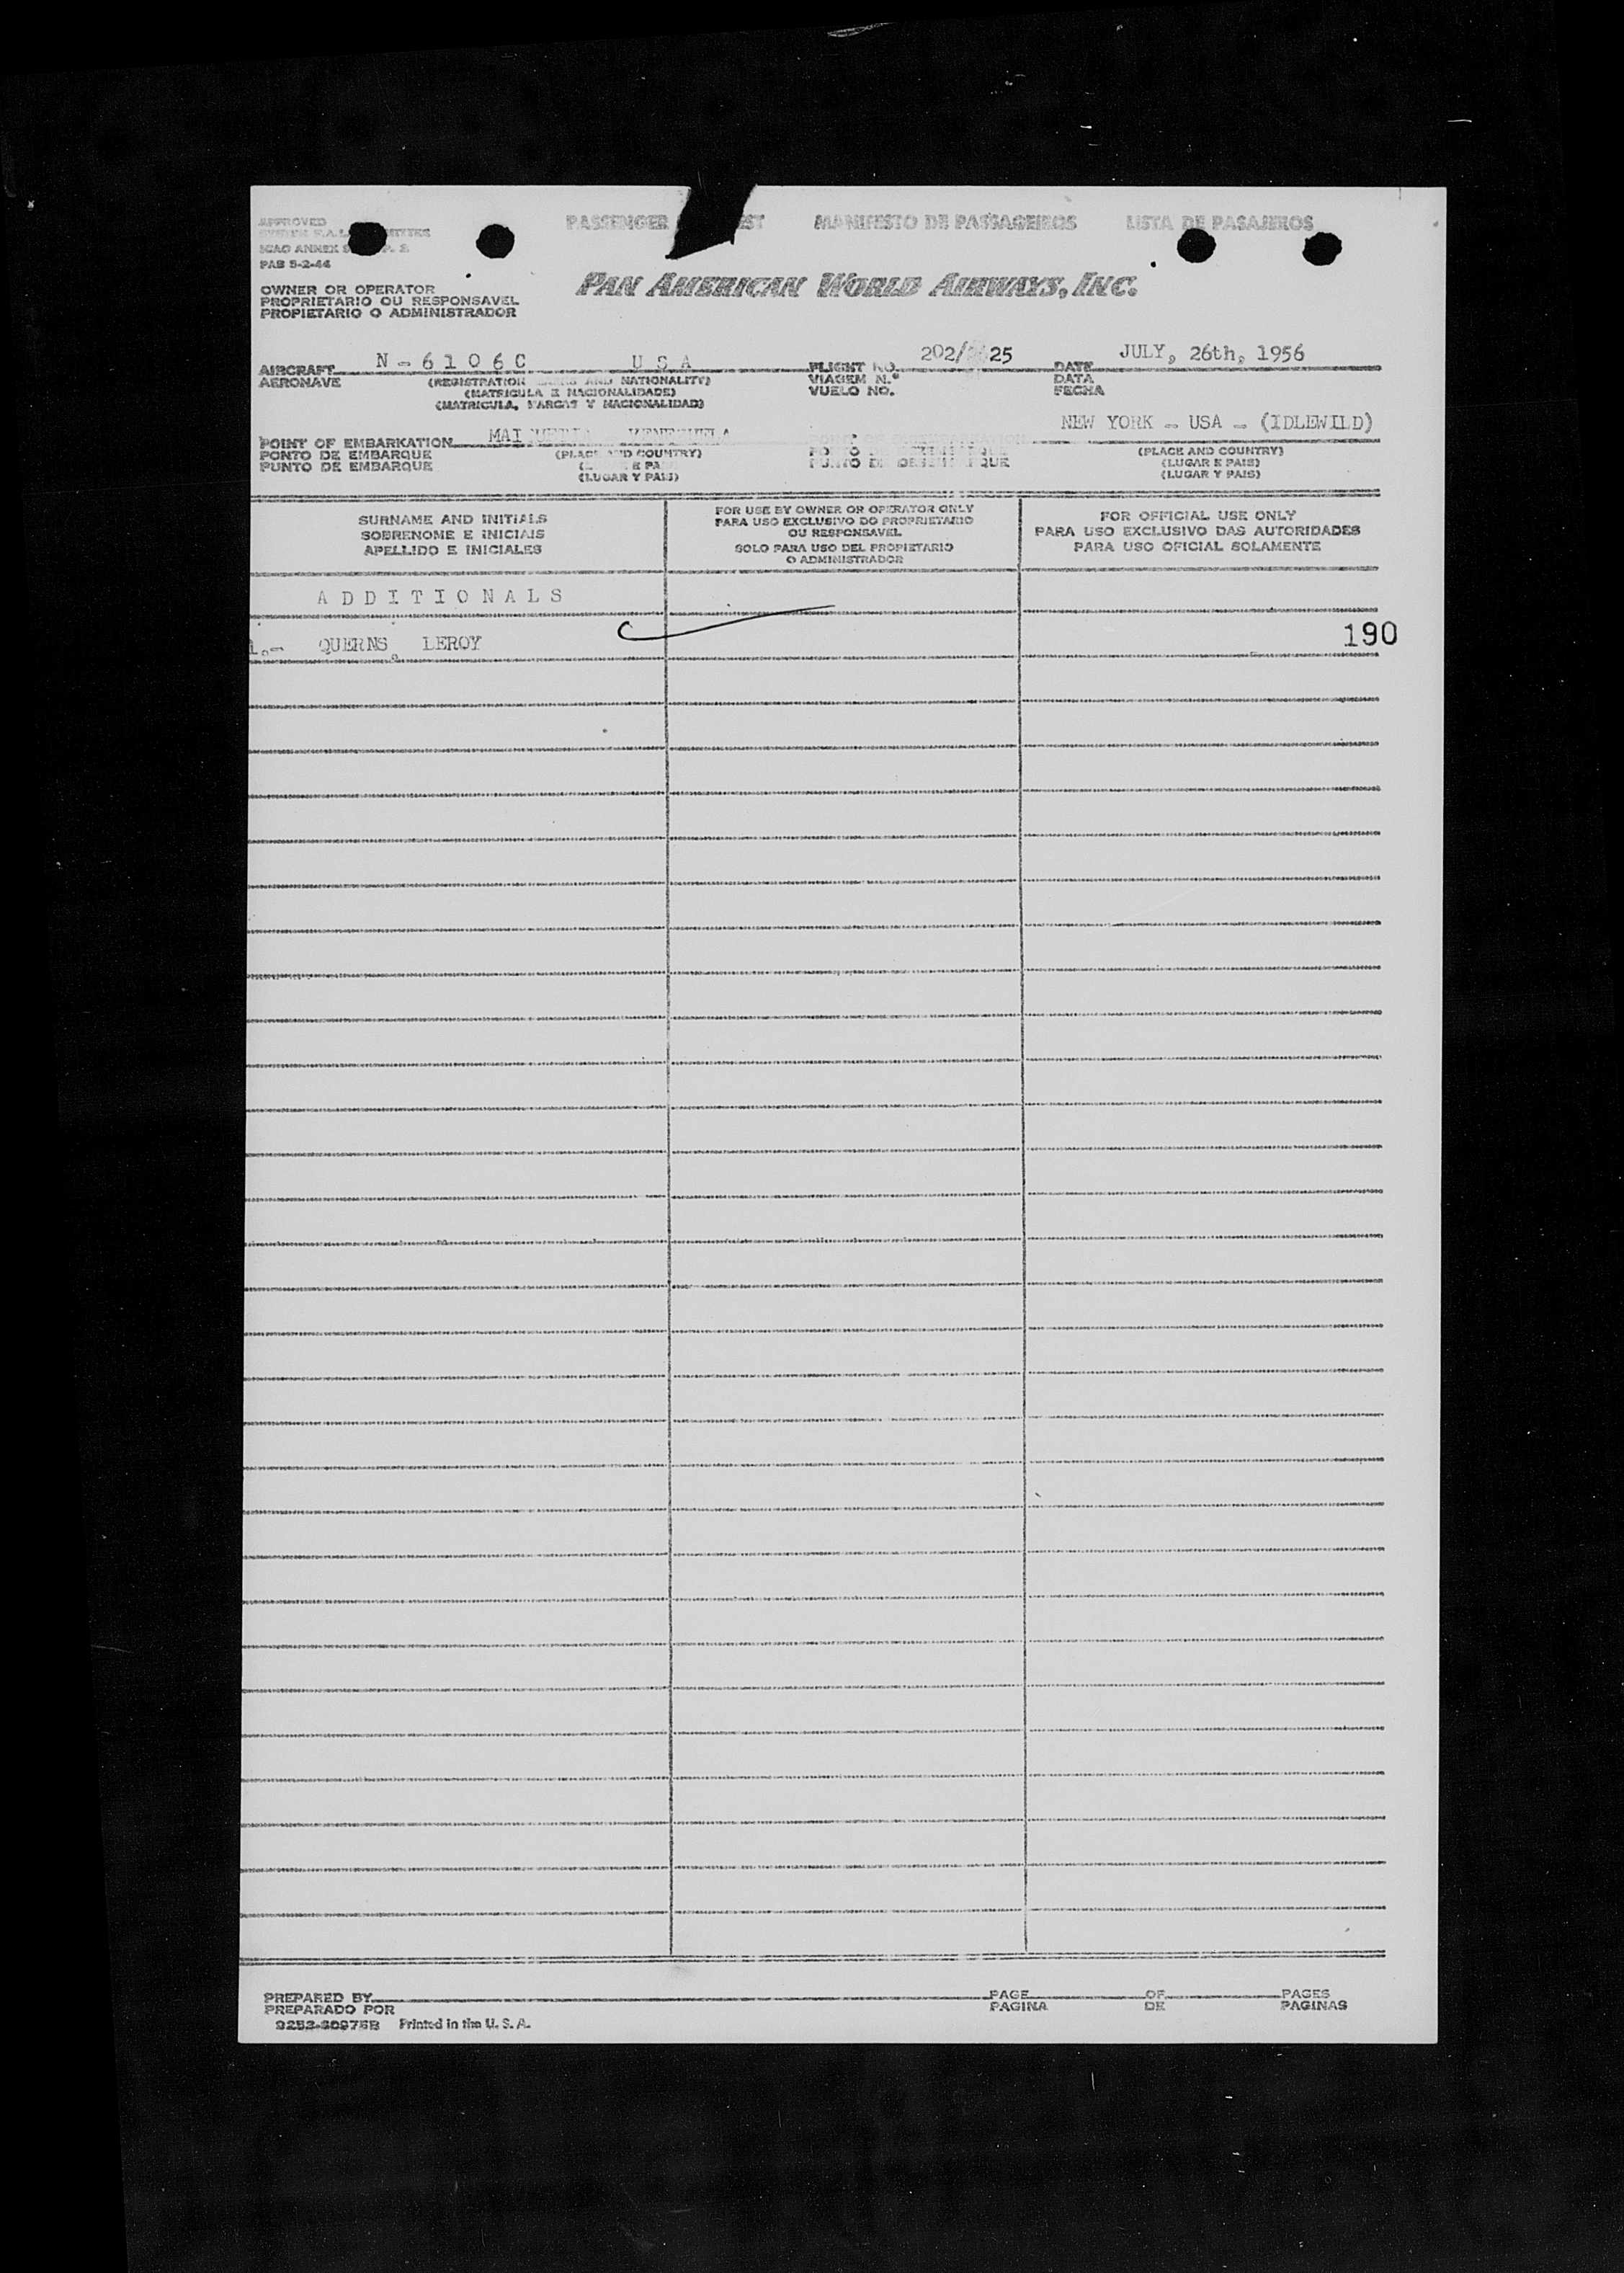 APPROVED
ICAO ANNEX 9
PAB 5-2-44
PASSENGER MANIFESTO DE PASSAGEIROS LISTA DE PASAJEROS
OWNER OR OPERATOR
PROPRIETARIO OU RESPONSAVEL
PROPIETARIO O ADMINISTRADOR
PAN AMERICAN WORLD AIRWAYS, INC.
AIRCRAFT N-6106C U S A FLIGHT NO. 202/ 25 DATE JULY, 26th, 1956
AERONAVE (REGISTRATION AND NATIONALITY) VIAGEM N.º DATA
(MATRICULA E NACIONALIDADE) VUELO NO. FECHA
(MATRICULA, MARCAS Y NACIONALIDAD)
POINT OF EMBARKATION VENEZUELA NEW YORK - USA - (IDLEWILD)
PONTO DE EMBARQUE (PLACE AND COUNTRY) (PLACE AND COUNTRY)
PUNTO DE EMBARQUE PUNTO DE DESEMBARQUE (LUGAR E PAIS)
(LUGAR Y PAIS) (LUGAR Y PAIS)
SURNAME AND INITIALS
SOBRENOME E INICIAIS
APELLIDO E INICIALES
FOR USE BY OWNER OR OPERATOR ONLY
PARA USO EXCLUSIVO DO PROPRIETARIO
OU RESPONSAVEL
SOLO PARA USO DEL PROPIETARIO
O ADMINISTRADOR
FOR OFFICIAL USE ONLY
PARA USO EXCLUSIVO DAS AUTORIDADES
PARA USO OFICIAL SOLAMENTE
A D D I T I O N A L S
1.- QUERNS, LEROY 190
PREPARED BY PAGE OF PAGES
PREPARADO POR PAGINA DE PAGINAS
Printed in the U. S. A.